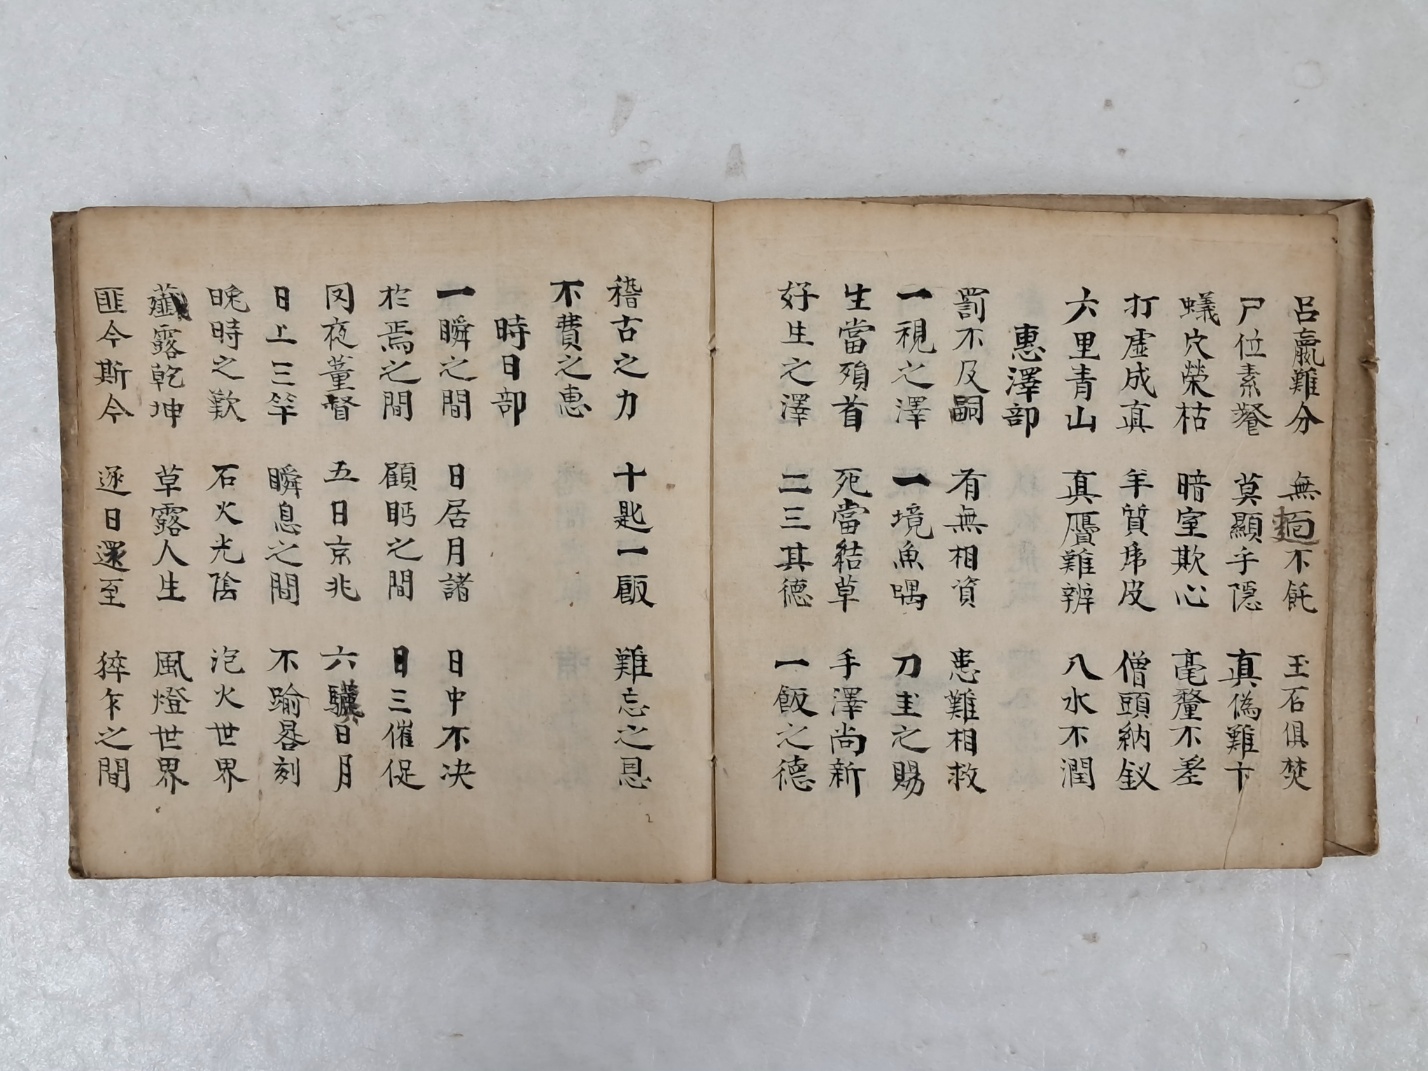 呂嬴難分 無麵不飥 玉石俱焚
尸位素餐 莫顯乎隱 真偽難卞
蟻穴榮枯 暗室欺心 毫釐不差
打虛成真 羊質虎皮 僧頭納釵
六里青山 真贗難辨 八水不潤
惠澤部
罰不及嗣 有無相資 患難相救
一視之澤 一境魚喁 刀圭之賜
生當殞首 死當結草 手澤尚新
好生之澤 二三其德 一飯之德
稽古之力 十匙一飯 難忘之恩
不費之惠
時日部
一瞬之間 日居月諸 日中不决
於焉之間 顧眄之間 日三催促
罔夜董督 五日京兆 六驥日月
日上三竿 瞬息之間 不踰晷刻
晚時之歎 石火光陰 泡火世界
薤露乾坤 草露人生 風燈世界
匪今斯今 逐日還至 猝乍之間